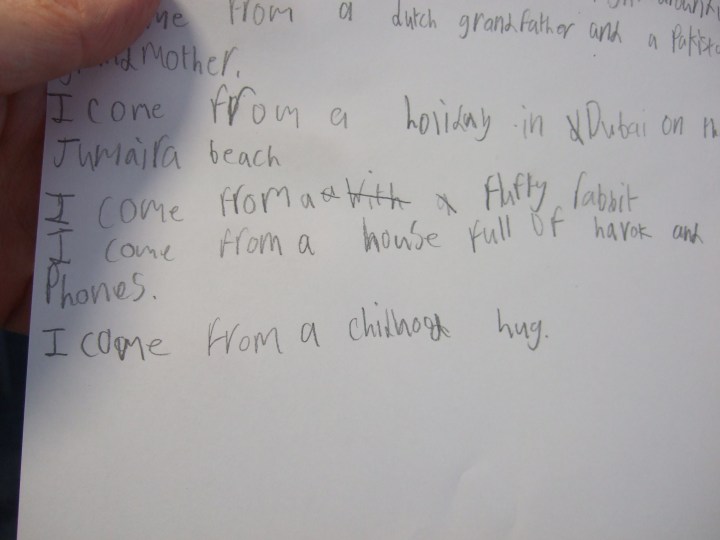 from a dutch grandfather and a
Mother.
I come from a holiday in Dubai on
Jumaira beach
I come from a with a fluffy rabbit
I come from a house full of havok and
Phones.
I come from a chidhood hug.